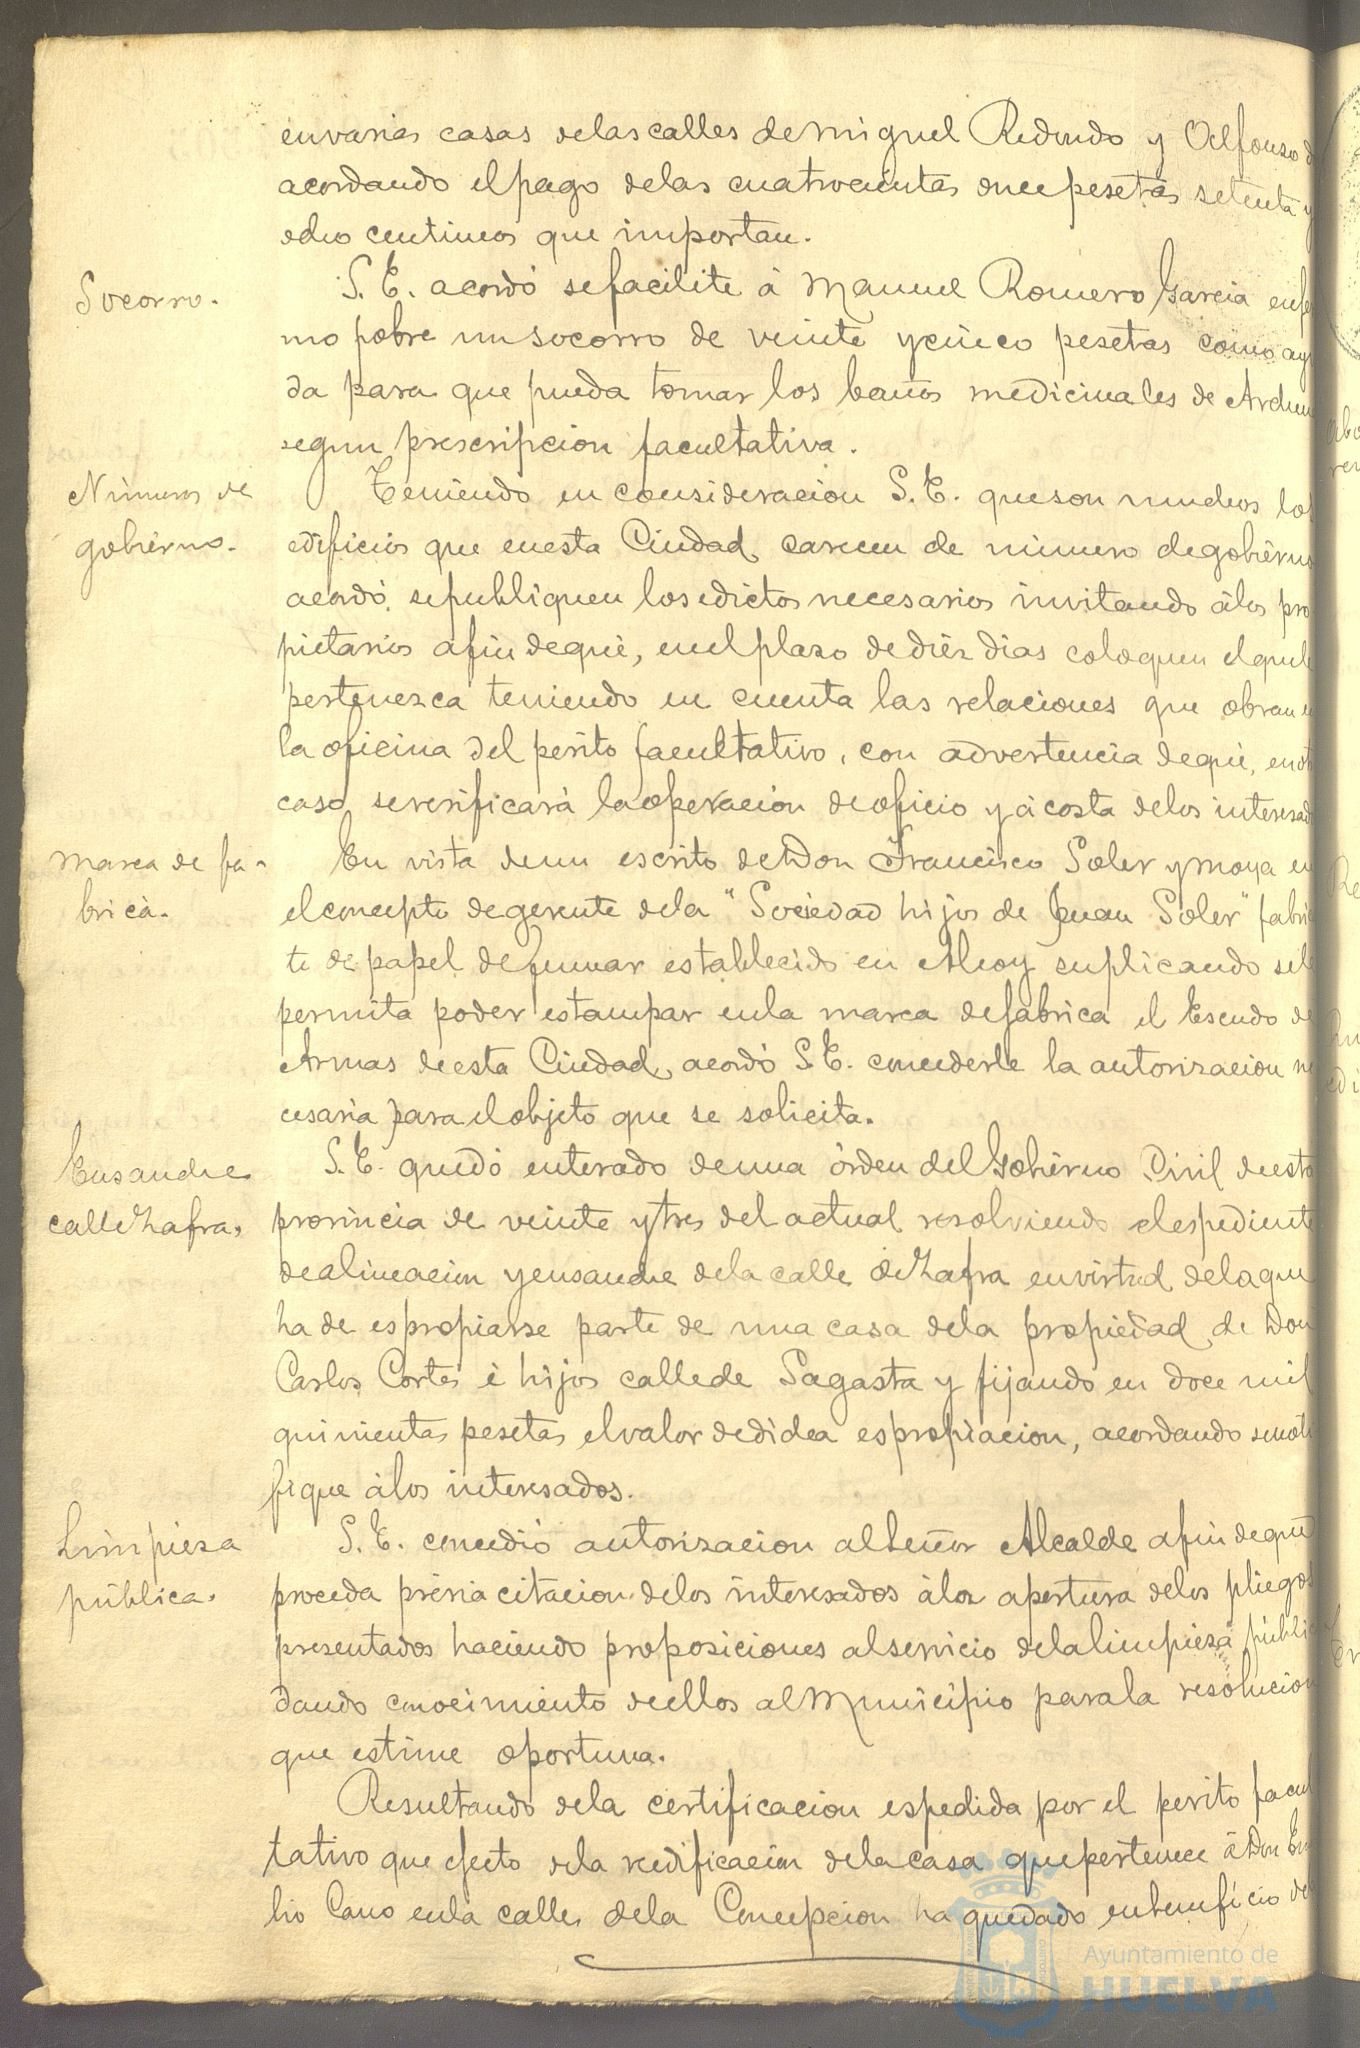 en varias casas de las calles de Miguel Redondo y Alfonso
acordando el pago de las cuatrocientas once pesetas setenta y
ocho centimos que importan.
Socorro.
S. E. acordó se facilite á Manuel Romero Garcia enfe
mo pobre un socorro de veinte y cinco pesetas como ay
da para que pueda tomar los baños medicinales de Archen
segun prescripcion facultativa.
Números de
gobierno.
Teniendo en consideracion S. E. que son muchos los
edificios que en esta Ciudad carecen de número de gobierno
acordó se publiquen los edictos necesarios invitando á los pro
pietarios a fin de que, en el plazo de diez dias coloquen el que le
pertenezca teniendo en cuenta las relaciones que obran en
la oficina del perito facultativo, con advertencia de que, en ot
caso, se verificará la operacion de oficio y á costa de los interesad
Marca de fa-
brica.
En vista de un escrito de Don Francisco Soler y Moya en
el concepto de gerente de la "Sociedad hijos de Juan Soler" fabri
te de papel de fumar establecido en Alcoy suplicando se le
permita poder estampar en la marca de fabrica el Escudo de
Armas de esta Ciudad, acordó S. E. concederle la autorizacion ne
cesaria para el objeto que se solicita.
Ensanche
calle Zafra.
S. E. quedó enterado de una órden del Gobierno Civil de esta
provincia de veinte y tres del actual resolviendo el espediente
de alineacion y ensanche de la calle de Zafra en virtud de la que
ha de espropiarse parte de una casa de la propiedad de Don
Carlos Cortes é hijos calle de Sagasta y fijando en doce mil
quinientas pesetas el valor de dicha espropiacion, acordando se noti
fique á los interesados.
Limpieza
pública.
S. E. concedió autorizacion al Señor Alcalde a fin de que
proceda prévia citacion de los interesados á la apertura de los pliegos
presentados haciendo proposiciones al servicio de la limpieza públi
dando conocimiento de ellos al Municipio para la resolucion
que estime oportuna.
Resultando de la certificacion espedida por el perito facul
tativo que efecto de la reedificacion de la casa que pertenece á Don Em
lio Cano en la calle de la Concepcion ha quedado en beneficio de
Ayuntamiento de
HUELVA